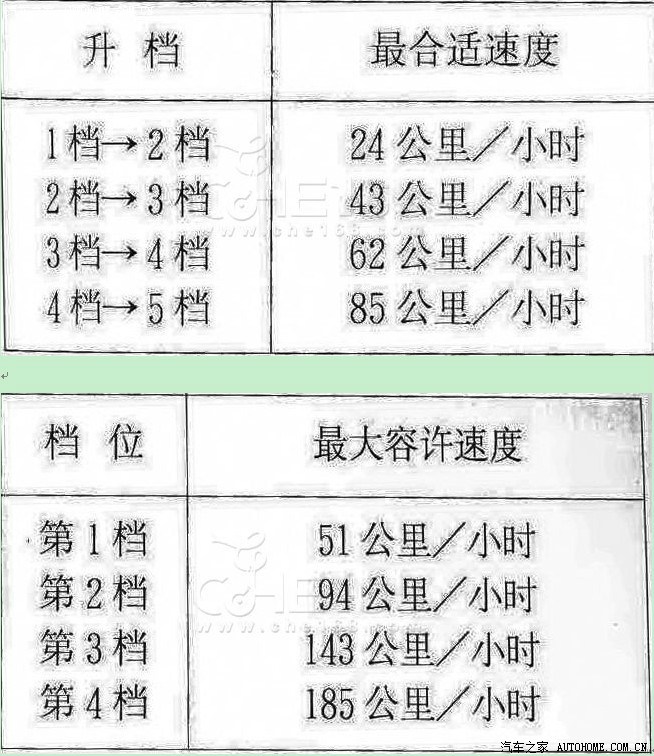 升 档 最合适速度
1档→2档 24公里／小时
2档→3档 43公里／小时
3档→4档 62公里／小时
4档→5档 85公里／小时
档 位 最大容许速度
第1档 51公里／小时
第2档 94公里／小时
第3档 143公里／小时
第4档 185公里／小时
CHE168
www.che168.com
CHE168
www.che168.com
汽车之家 AUTOHOME.COM.CN